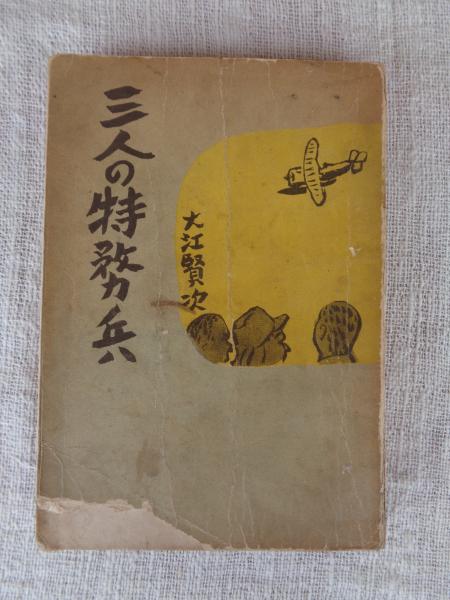 三人の特務兵
大江賢次